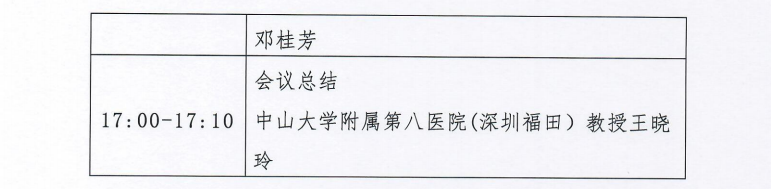 邓桂芳
会议总结
17:00-17:10 中山大学附属第八医院(深圳福田) 教授王晓
玲